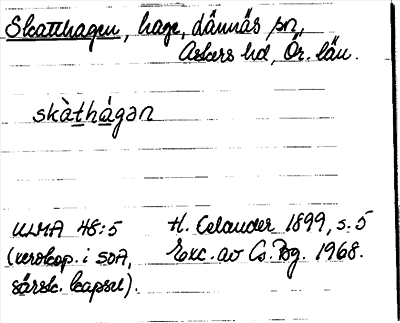 Skatthagen, hage, Lännäs sn,
Askers hd, Ör. län.
skàthágan
ULMA 48:5
(xerokop. i SOA,
särsk. kapsel).
H. Celander 1899, s. 5
Exc. av Cs. Bg. 1968.